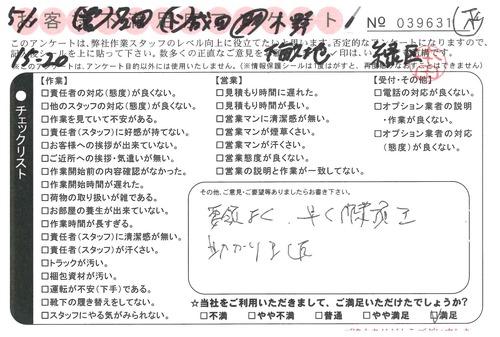 お客 ト № 039631
このアンケートは、弊社作業スタッフのレベル向上に役立てたい
15-20
※このアンケート、アンケート目的以外には使用いたしません。(※情報保護シールは1度はがすと、再度
チェックリスト
【作業】
□責任者の対応(態度)が良くない。
□他のスタッフの対応(態度)が良くない。
□作業を見ていて不安がある。
□責任者(スタッフ)に好感が持てない。
□お客様への挨拶が出来ていない。
□ご近所への挨拶・気遣いが無い。
□作業開始前の内容確認がなかった。
□作業開始時間が遅れた。
□荷物の取り扱いが雑である。
□お部屋の養生が出来ていない。
□作業時間が長すぎる。
□責任者(スタッフ)に清潔感が無い。
□責任者(スタッフ)が汗くさい。
□トラックが汚い。
□梱包資材が汚い。
□運転が不安(下手)である。
□靴下の履き替えをしてない。
□スタッフにやる気がみられない。
【営業】
□見積もり時間に遅れた。
□見積もり時間が長い。
□営業マンに清潔感が無い。
□営業マンが煙草くさい。
□営業マンが汗くさい。
□営業態度が良くない。
□営業の説明と作業が一致してない。
【受付・その他】
□電話の対応が良くない。
□オプション業者の説明
・作業が良くない。
□オプション業者の対応
(態度)が良くない。
その他、ご意見・ご要望等ありましたらお書き下さい。
☆当社をご利用いただきまして、ご満足いただけたでしょうか?
□不満 □やや不満 □普通 □やや満足 □満足